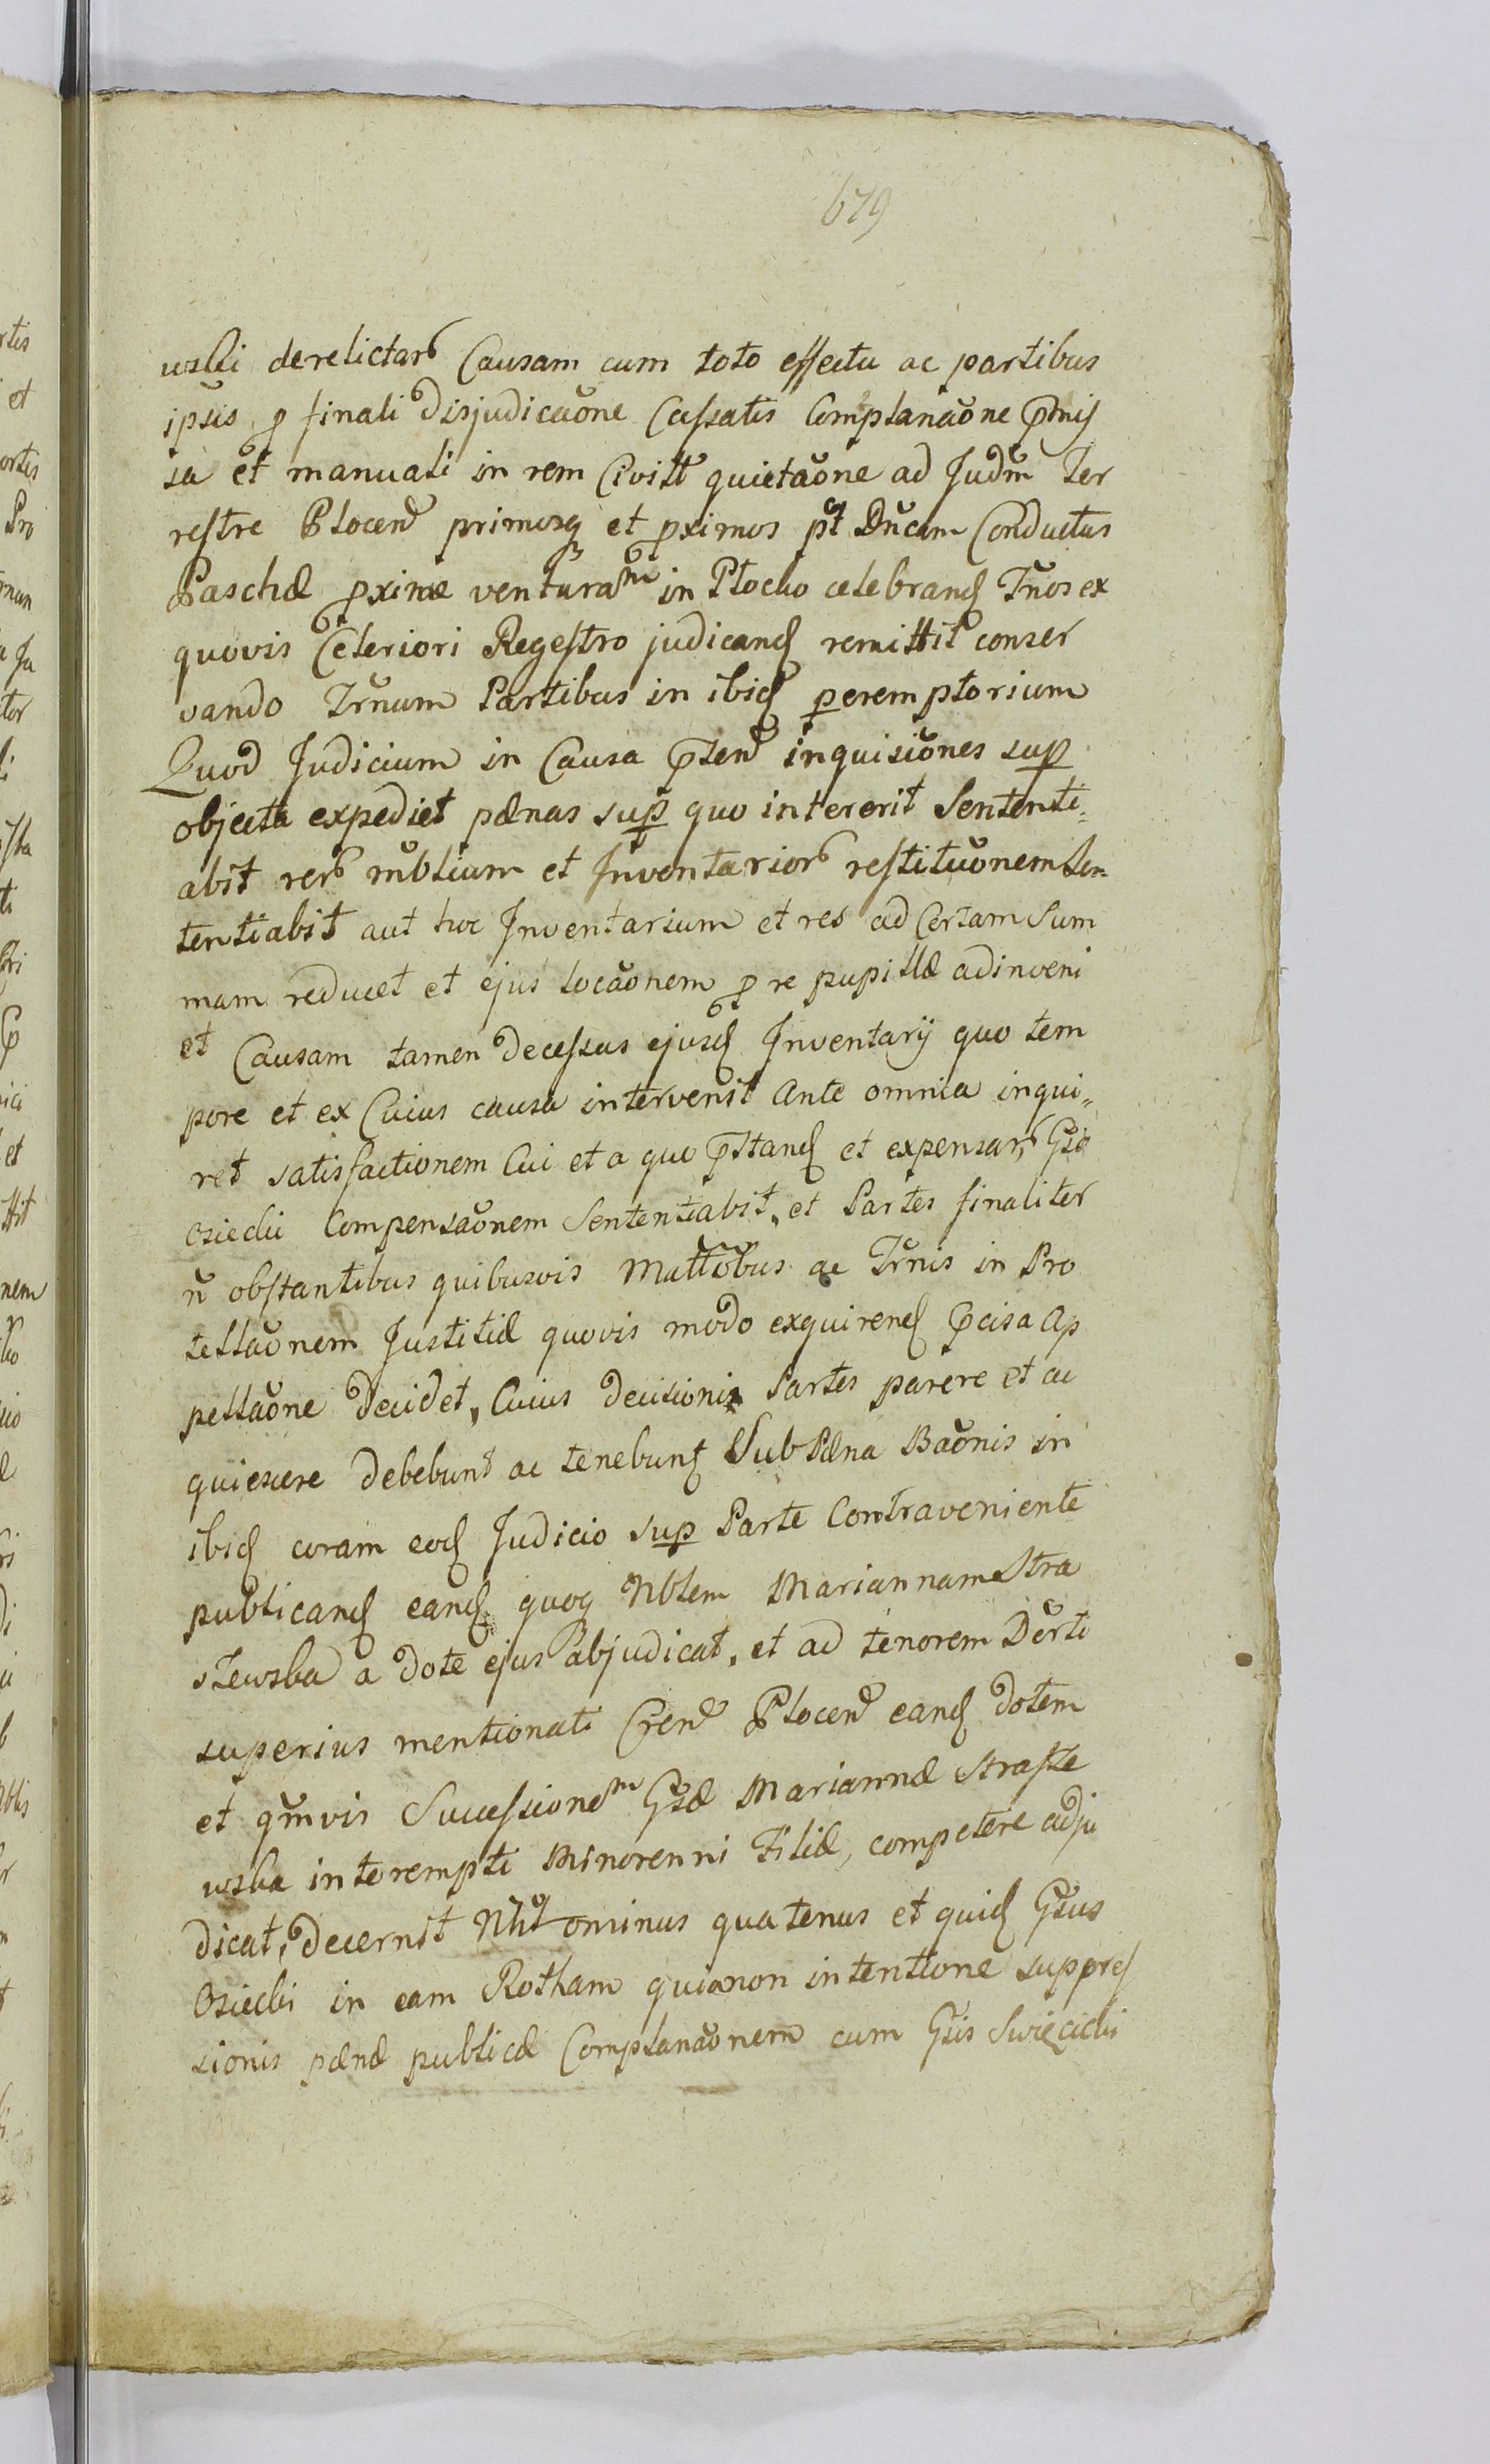 679
wski derelictar Causam cum toto effectu ac partibus
ipsis p finali disjudicaone Cassatis Complanaone pmis
sa et manuali in rem Civilt quietaone ad Judm Ter
restre Plocen primosq et pximos pt Dncam Conductus
Paschæ pximæ venturam in Plocko celebrand Trnos ex
quovis Celeriori Regestro judicand remittit conser
vando Trnum Partibus in ibid peremptorium
Quod Judicium in Causa pnten inquisiones sup
objecta expediet pænas sup quo intererit Sententi
abit rer mblium et Inventarior restituonem Sen
tentiabit aut hoc Inventarium et res ad Certam Sum
mam reducet et ejus locaonem p re pupillæ adinveni
et Causam tamen decessus ejusd Inventarij quo tem
pore et ex Cuius causa intervenit Ante omnia inqui„
ret satisfactionem Cui et a quo pstand et expensar Gso
Osiecki Compensaonem Sententiabit, et Partes finaliter
n obstantibus quibusvis Mattobus ac Trnis in Pro
tellaonem Justitiæ quovis modo exquirend pcisa Ap
pellaone decidet, Cuius decisioni Partes parere et ac
quiescere debebunt ac tenebunt Sub Pæna Baonis in
ibid coram eod Judicio sup Parte Contraveniente
publicand eand quoq Nblem Mariannam Stra
szewska a dote ejus abjudicat, et ad tenorem Dcrti
superius mentionati Cren Plocen eand dotem
et qmvis Successionem Gsæ Mariannæ Strasze
wska interempti Minorenni Filiæ, competere adju
dicat, decernit Nhtominus quatenus et quid Gsus
Osiecki in eam Rotham quia non intentione suppres
sionis pænæ publicæ Complanaonem cum Gsis Swięcicki